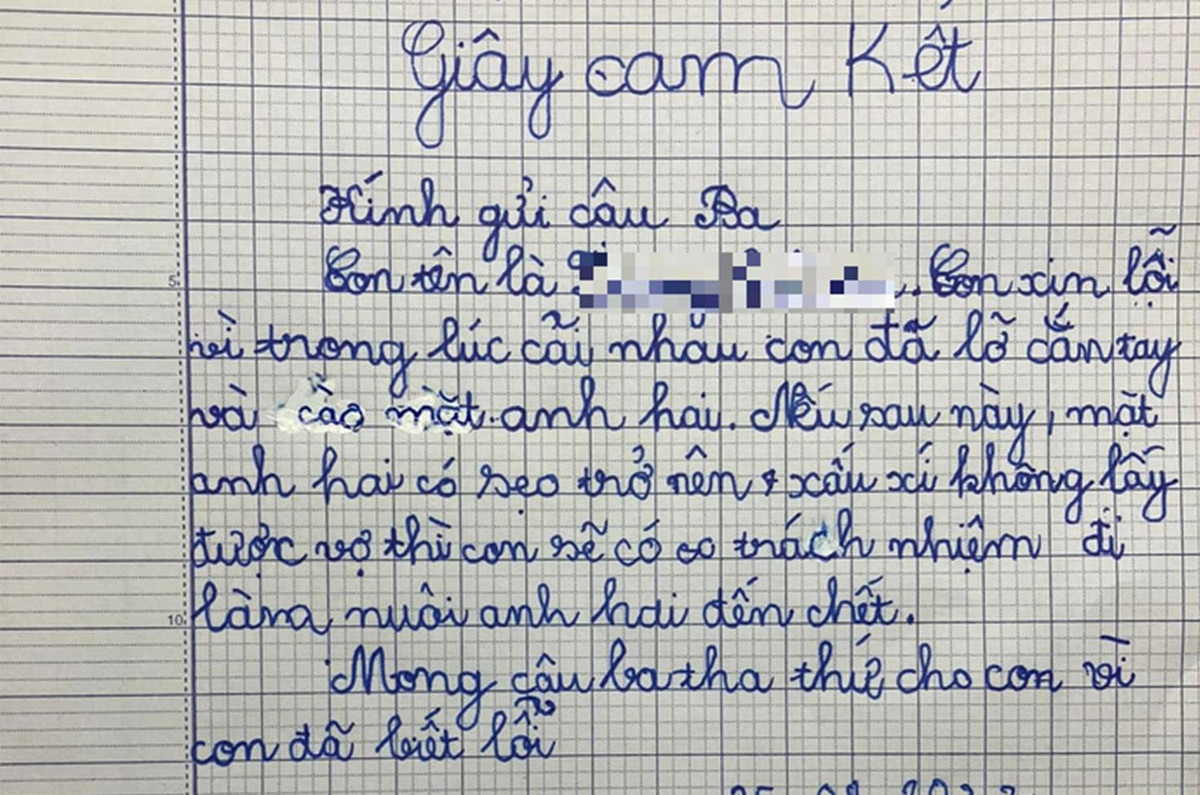 Giây cam Kết
Kính gửi câu Ba
Con tên là . Con xin lỗi
vì trong lúc cãi nhau con đã lỡ cắn tay
và cào mặt anh hai. Nếu sau này, mặt
anh hai có sẹo trở nên xấu xí không lấy
được vợ thì con sẽ có co trách nhiệm đi
làm nuôi anh hai đến chết.
Mong câu ba tha thứ cho con vì
con đã biết lỗi